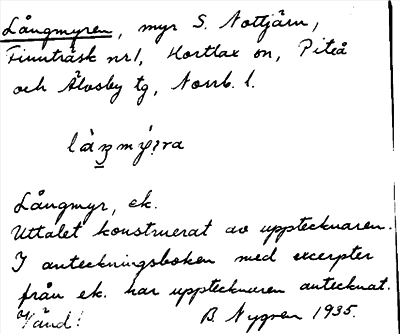 Långmyren, myr S. Nottjärn,
Finnträsk nr1, Hortlax sn, Piteå
och Älvsby tg, Norrb. l.
Långmyr, ek.
Uttalet konstruerat av upptecknaren.
I anteckningsboken med excerpter
från ek. har upptecknaren antecknat.
Vänd! B. Nygren 1935.